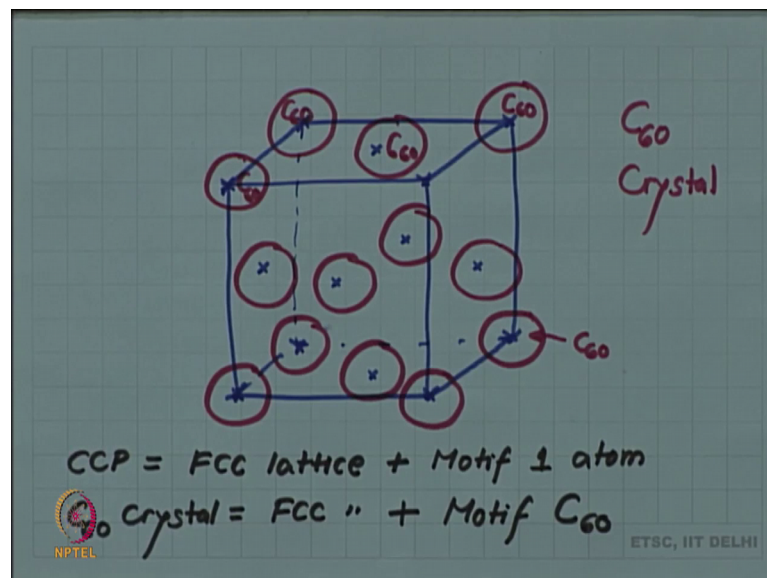 C60
C60
C60
C60
C60
Crystal
C60
CCP = FCC lattice + Motif 1 atom
C60 Crystal = FCC " + Motif C60
NPTEL
ETSC, IIT DELHI